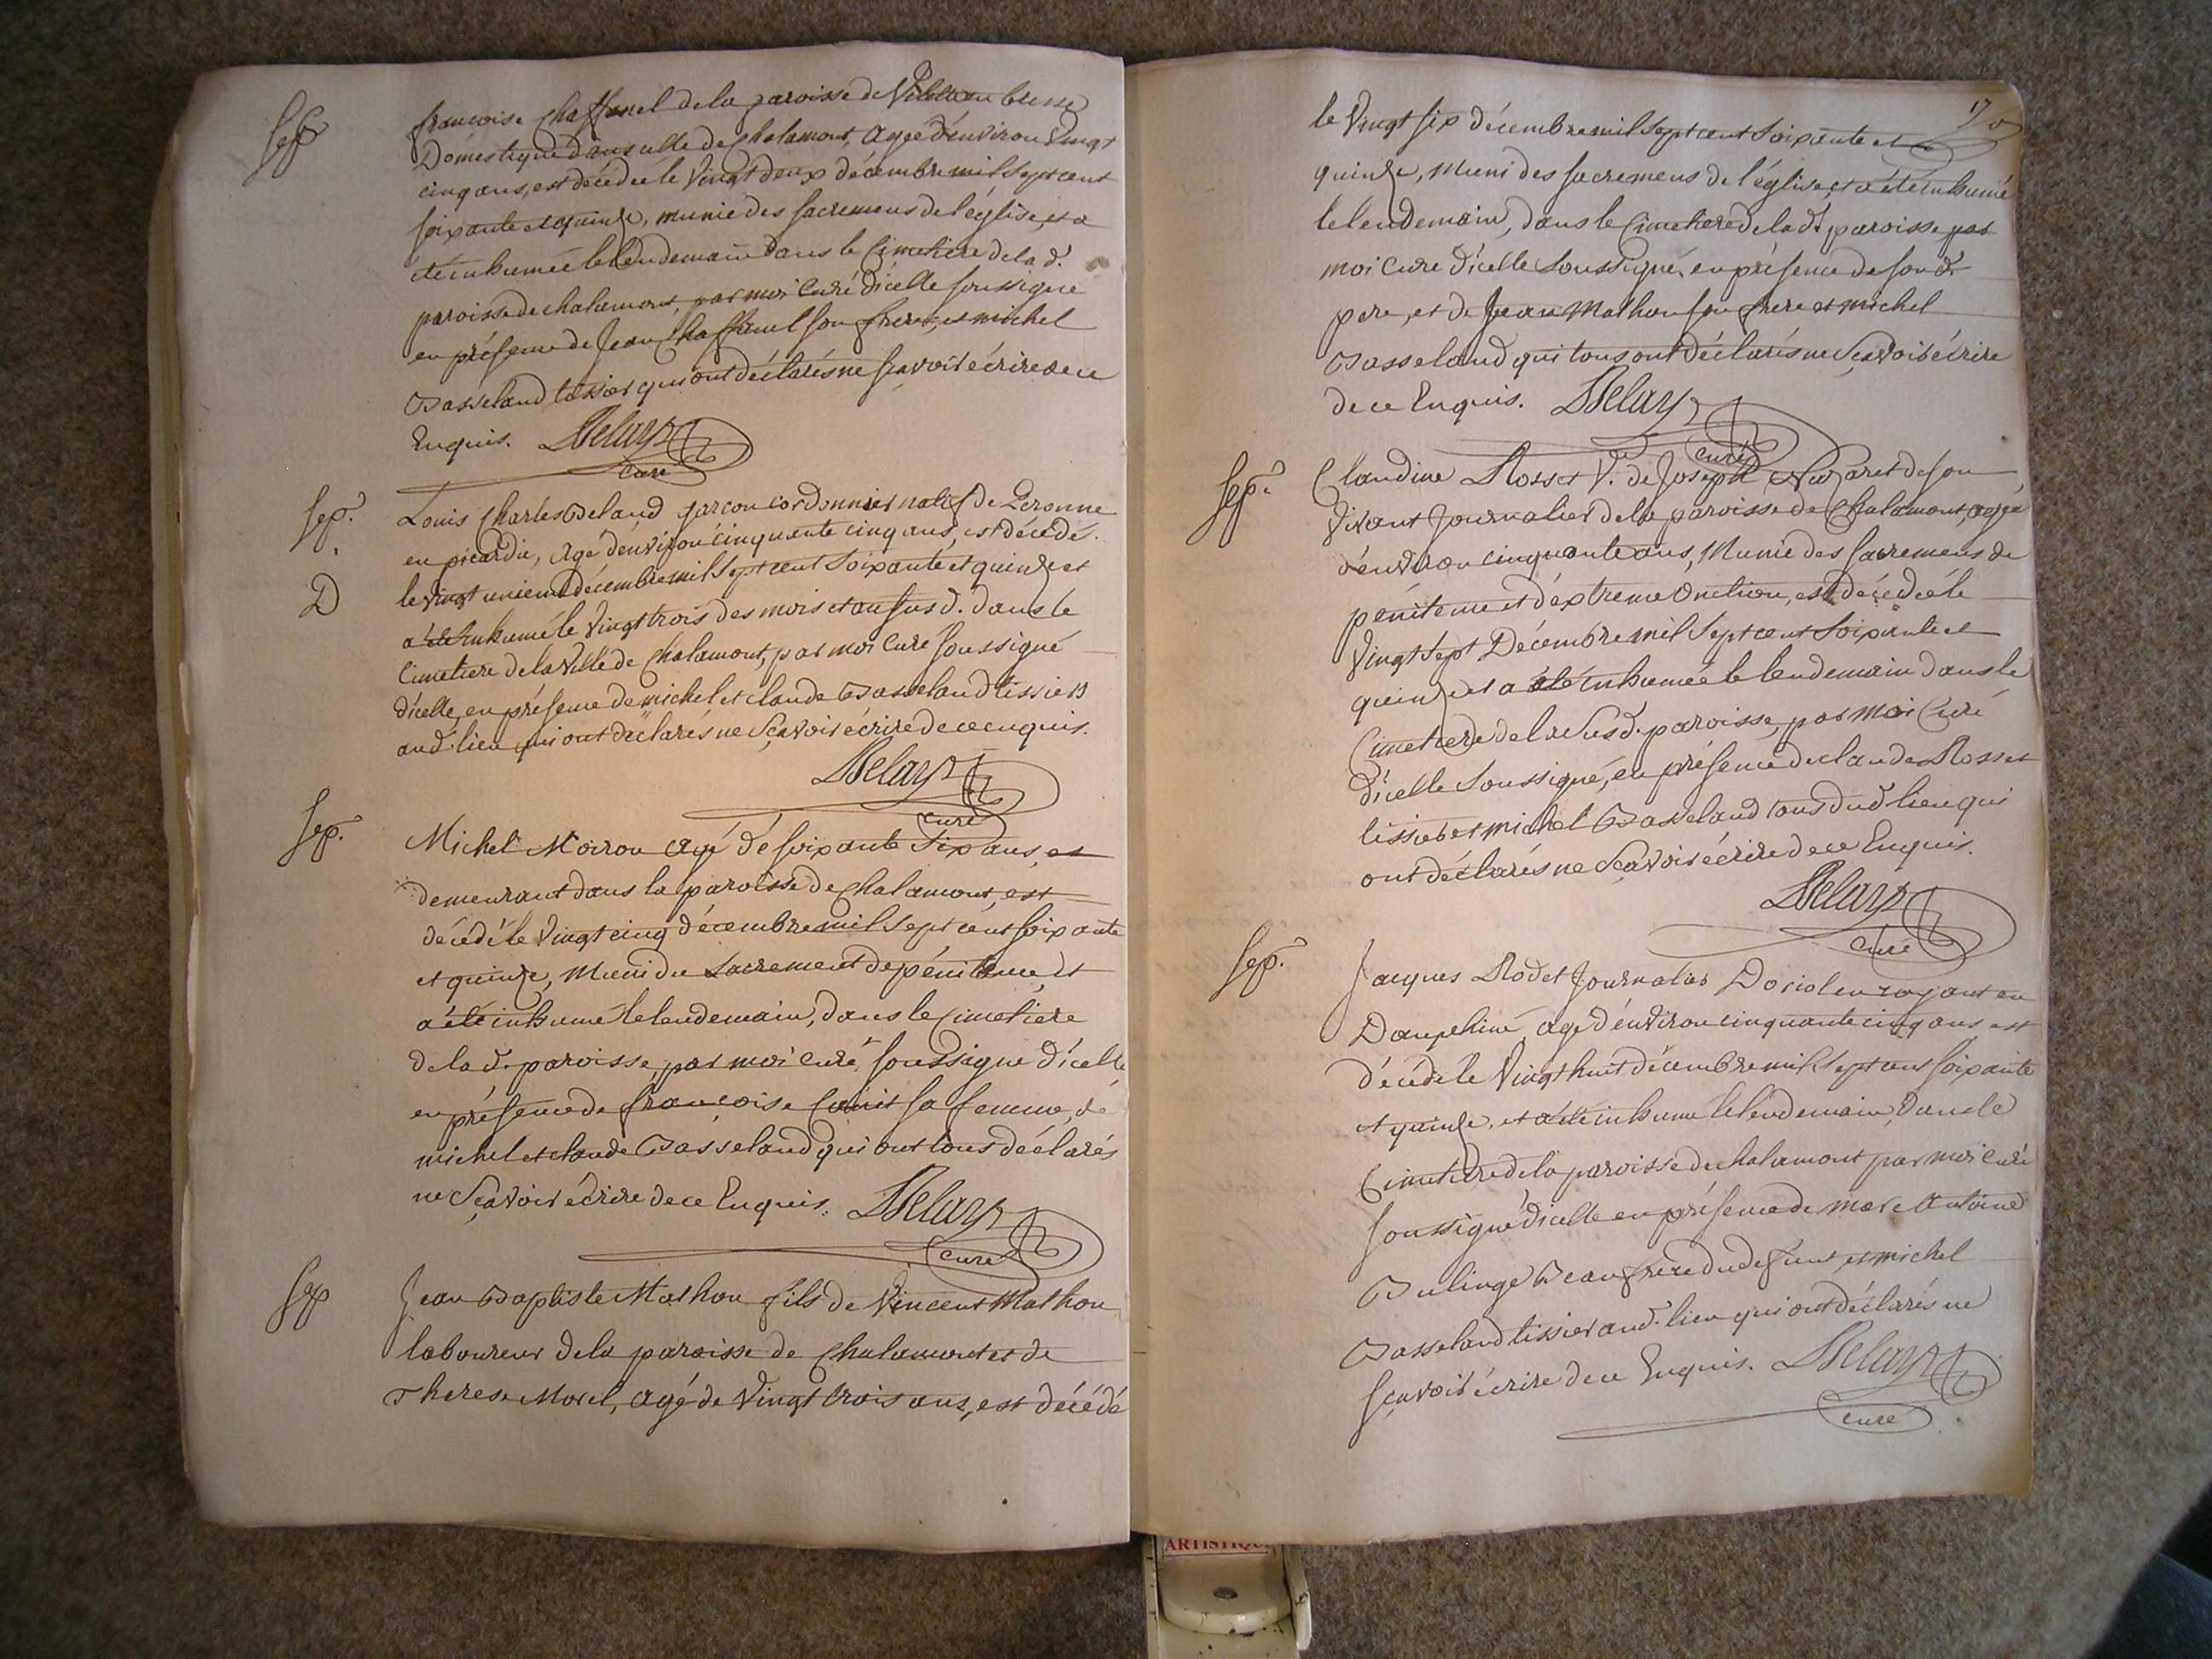 Sep
françoise Chaffanel dela paroisse de Villette en bresse
Domestique dans celle de Chalamont, agée d'environ Vingt
cinq ans, est décédée le Vingt deux décembre mil sept cent
soixante et quinze, munie des sacremens de l'église, et a
été inhumée le lendemain dans le Cimetiere dela d.
paroisse de chalamont, par moi Curé d'icelle soussigné
en présence de Jean Chaffanel son frere, et michel
Basseland tissier qui ont déclarés ne sçavoir écrire de ce
Enquis. Delay
curé
Sep.
D
Louis Charles Beland garcon cordonnier natif de Peronne
en picardie, agé d'environ cinquante cinq ans, est décédé
le vingt unieme décembre mil sept cent soixante et quinze et
a été inhumé le vingt trois des mois et an susd. dans le
Cimetiere dela Ville de Chalamont, par moi Curé soussigné
d'icelle, en présence de michel et claude Basseland tissiers
aud. lieu qui ont déclarés ne Sçavoir écrire de ce enquis.
Delay
curé
Sep.
Michel Moiron agé de soixante Six ans, et
demeurant dans la paroisse de Chalamont, est
décédé le Vingt cinq décembre mil sept cent soixante
et quinze, Muni du Sacrement de pénitence, et
a été inhumé le lendemain, dans le Cimetiere
de la d. paroisse, par moi Curé soussigné d'icelle
en présence de françoise sa femme, de
michel et claude Basseland qui ont tous déclarés
ne Sçavoir écrire de ce Enquis. Delay
curé
Sep
Jean Baptiste Mathon fils de Vincent Mathon
laboureur dela paroisse de Chalamont et de
Therese Morel, agé de Vingt trois ans, est décédé
170
le Vingt six décembre mil sept cent soixante et
quinze, Muni des sacremens de l'église, et a été inhumé
le lendemain, dans le Cimetiere de la dt. paroisse par
moi Curé d'icelle Soussigné, en présence de son d.
pere, et de Jean Mathon son frere et michel
Basseland qui tous ont déclarés ne Sçavoir écrire
de ce Enquis. Delay
curé
Sep.
Claudine Rosset Ve. de Joseph Nazaret de son
Vivant Journalier dela paroisse de Chalamont, agée
d'environ cinquante ans, Munie des sacremens de
pénitence et d'extreme Onction, est décédée le
Vingt Sept Décembre mil Sept cent Soixante et
quinze et a été inhumée le lendemain dans le
Cimetiere de la Susd. paroisse, par moi Curé
d'icelle Soussigné, en présence de claude Rosset
tissier et michel Basseland tous dud. lieu qui
ont déclarés ne Sçavoir écrire de ce Enquis.
Delay
curé
Sep.
Jacques Rodet Journalier D'oriol en royant en
Dauphiné, agé d'environ cinquante cinq ans est
décédé le Vingt huit décembre mil sept cent soixante
et quinze, et a été inhumé le lendemain, dans le
Cimetiere dela paroisse de chalamont par moi curé
soussigné d'icelle en présence de marc Antoine
Bulinge Beaufrere du defunt, et michel
Basseland tissier aud. lieu qui ont déclarés ne
sçavoir écrire de ce Enquis. Delay
curé
ARTISTIQUE